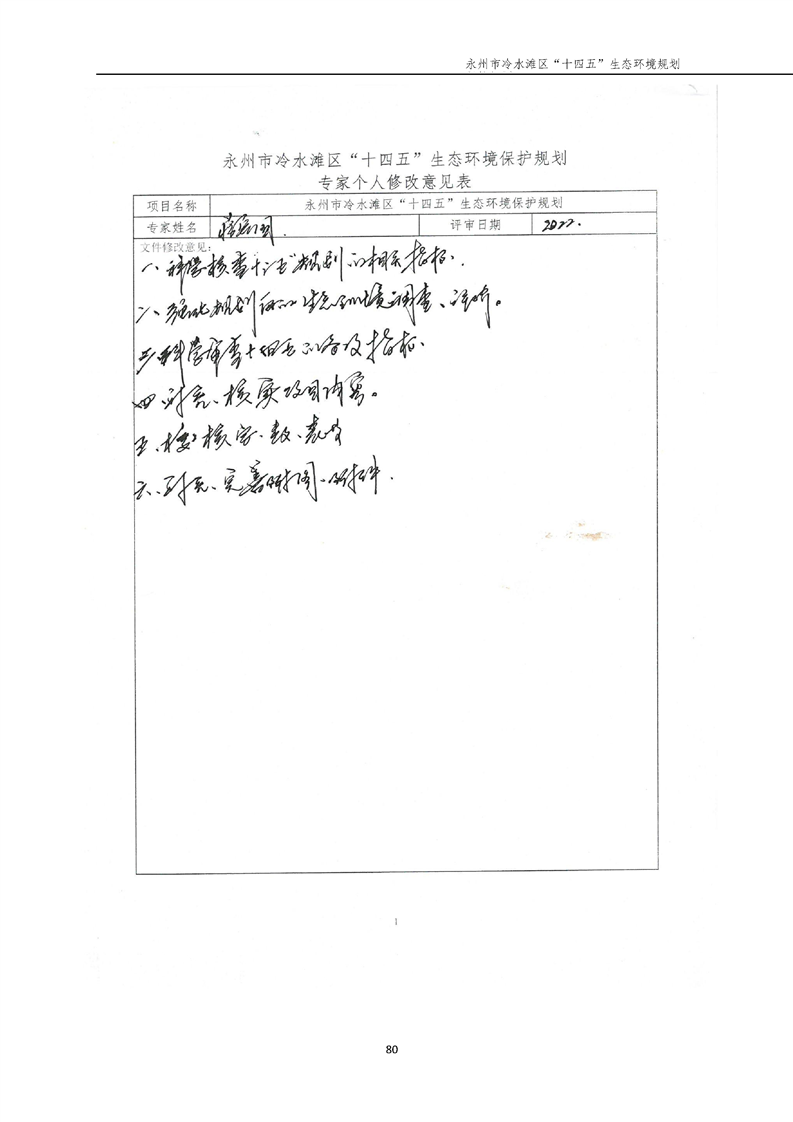 永州市冷水滩区“十四五”生态环境规划
永州市冷水滩区“十四五”生态环境保护规划
专家个人修改意见表
项目名称 永州市冷水滩区“十四五”生态环境保护规划
专家姓名 评审日期 2022.
文件修改意见：
一、科学核查十三五规划的相关指标.
二、强化规划区的生态环境调查、评价。
三、科学核查十四五的各项指标.
四、补充、核实项目内容。
五、校核字、数、表
六、补充、完善附图、附件.
1
80